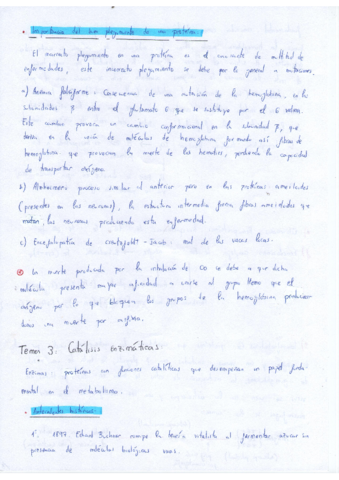 • Importancia del buen plegamiento de una proteína:
El incorrecto plegamiento en una proteína es el causante de multitud de
enfermedades, este incorrecto plegamiento se debe por lo general a mutaciones.
a) Anemia falciforme: Consecuencia de una mutación de la hemoglobina, en la
subunidad β entre el glutamato 6 que se sustituye por el 6 valina.
Este cambio provoca un cambio conformacional en la subunidad β, que
en la unión de moléculas de hemoglobina formando así fibras de
hemoglobina que provocan la muerte de los hematíes, perdiendo la capacidad
de transportar oxígeno.
b) Alzheimer: proceso similar al anterior pero en las proteínas amiloides
(presentes en las neuronas), la estructura intermedia forma fibras amiloides que
matan las neuronas produciendo esta enfermedad.
c) Encefalopatía de Creutzfeldt - Jakob: mal de las vacas locas.
La muerte producida por la inhalación de CO se debe a que dicha
molécula presenta mayor afinidad a unirse al grupo Hemo que el
oxígeno por lo que bloquea los grupos de la hemoglobina
una muerte por asfixia.
Tema 3. Catálisis enzimáticas.
Enzimas: proteínas con funciones catalíticas que desempeñan un papel funda-
mental en el metabolismo.
• históricos:
1. 1897 Eduard Buchner rompe la teoría vitalista al fermentar azúcar sin
presencia de moléculas biológicas vivas.